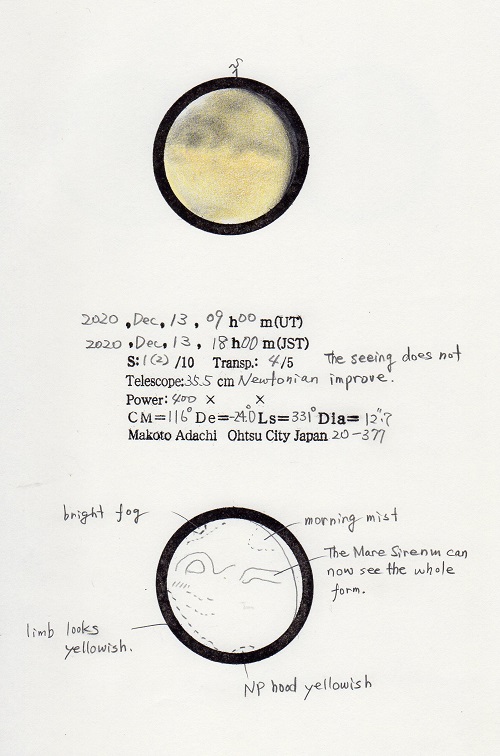 S
2020 , Dec, 13 , 09 h 00 m(UT)
2020 , Dec, 13 , 18 h 00 m(JST)
S: 1(2) /10 Transp.: 4/5 The seeing does not
Telescope: 35.5 cm Newtonian improve.
Power: 400 × ×
CM=116° De=-24.0° Ls=331° Dia= 12".7
Makoto Adachi Ohtsu City Japan 20-377
bright fog
morning mist
The Mare Sirenm can
now see the whole
form.
limb looks
yellowish.
NP hood yellowish